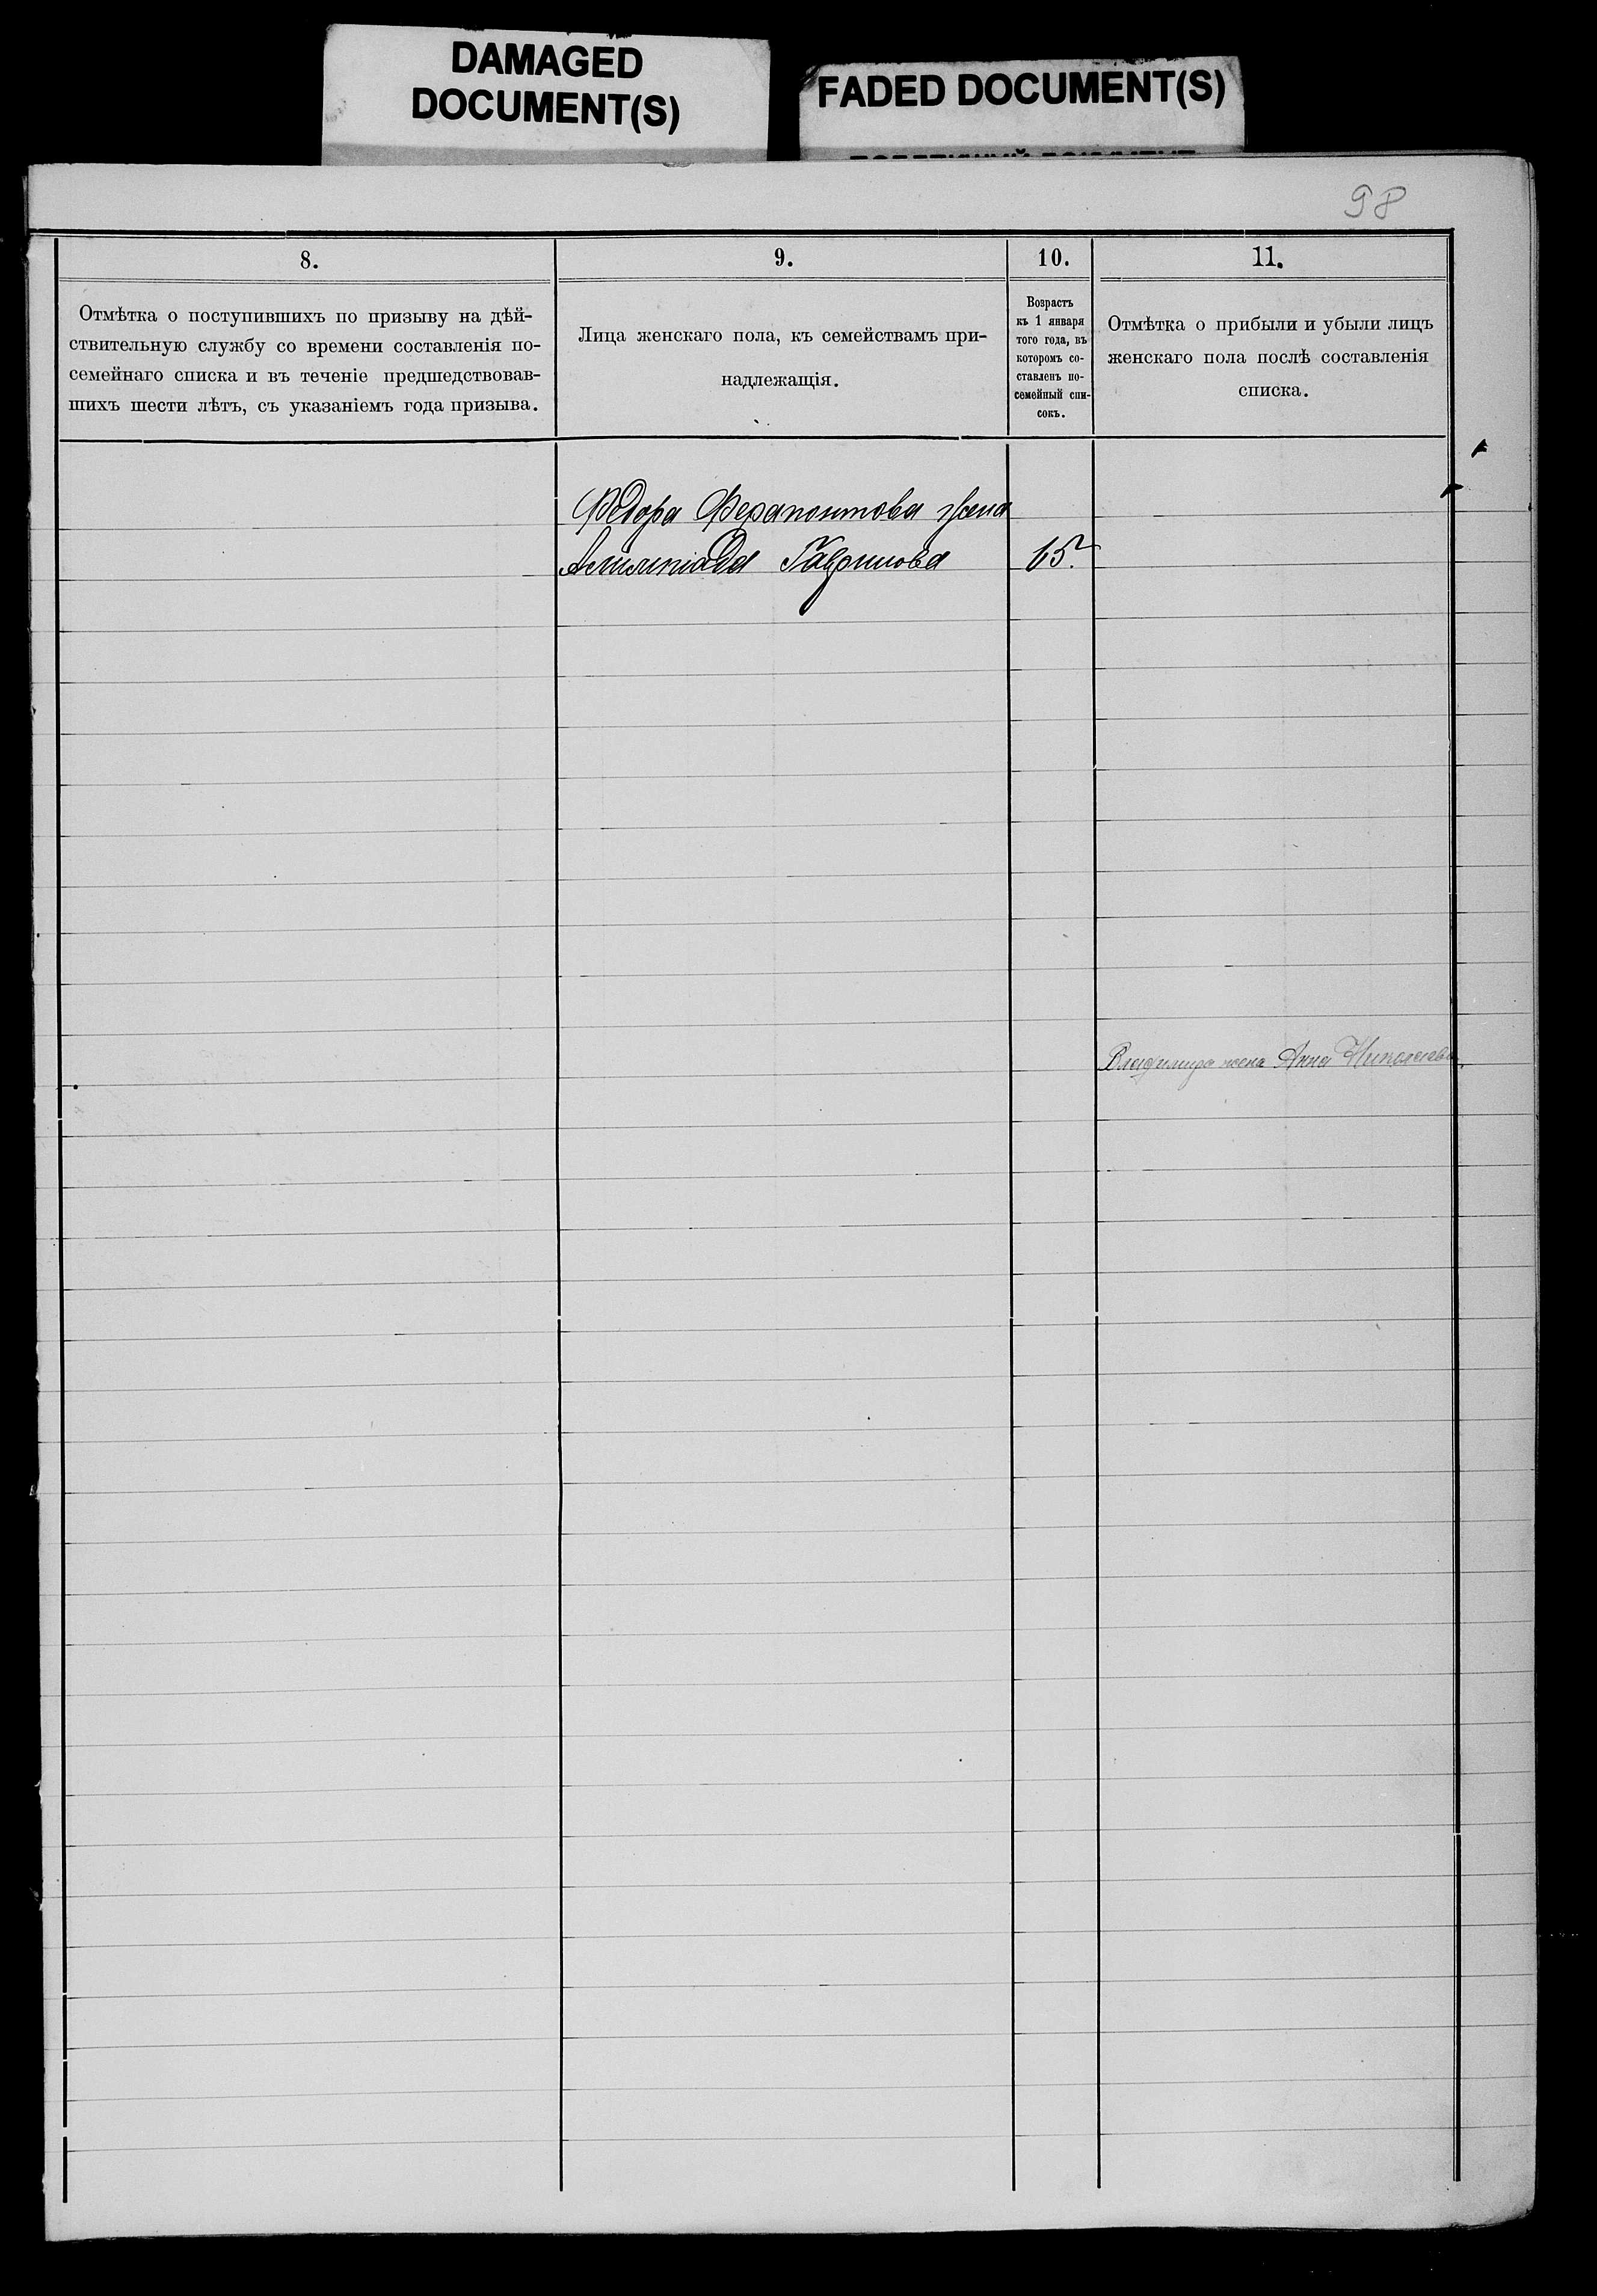 DAMAGED
DOCUMENT(S)
FADED DOCUMENT(S)
98
8.
9.
10.
11.
Отмѣтка о поступившихъ по призыву на дѣй-
ствительную службу со времени составленія по-
семейнаго списка и въ теченіе предшедствовав-
шихъ шести лѣтъ, съ указаніемъ года призыва.
Лица женскаго пола, къ семействамъ при-
надлежащія.
Возрастъ
къ 1 января
того года, въ
которомъ со-
ставленъ по-
семейный спи-
сокъ.
Отмѣтка о прибыли и убыли лицъ
женскаго пола послѣ составленія
списка.
Федора Ферапонтова жена
Гаврилова
Владимира жена Анна Николаева